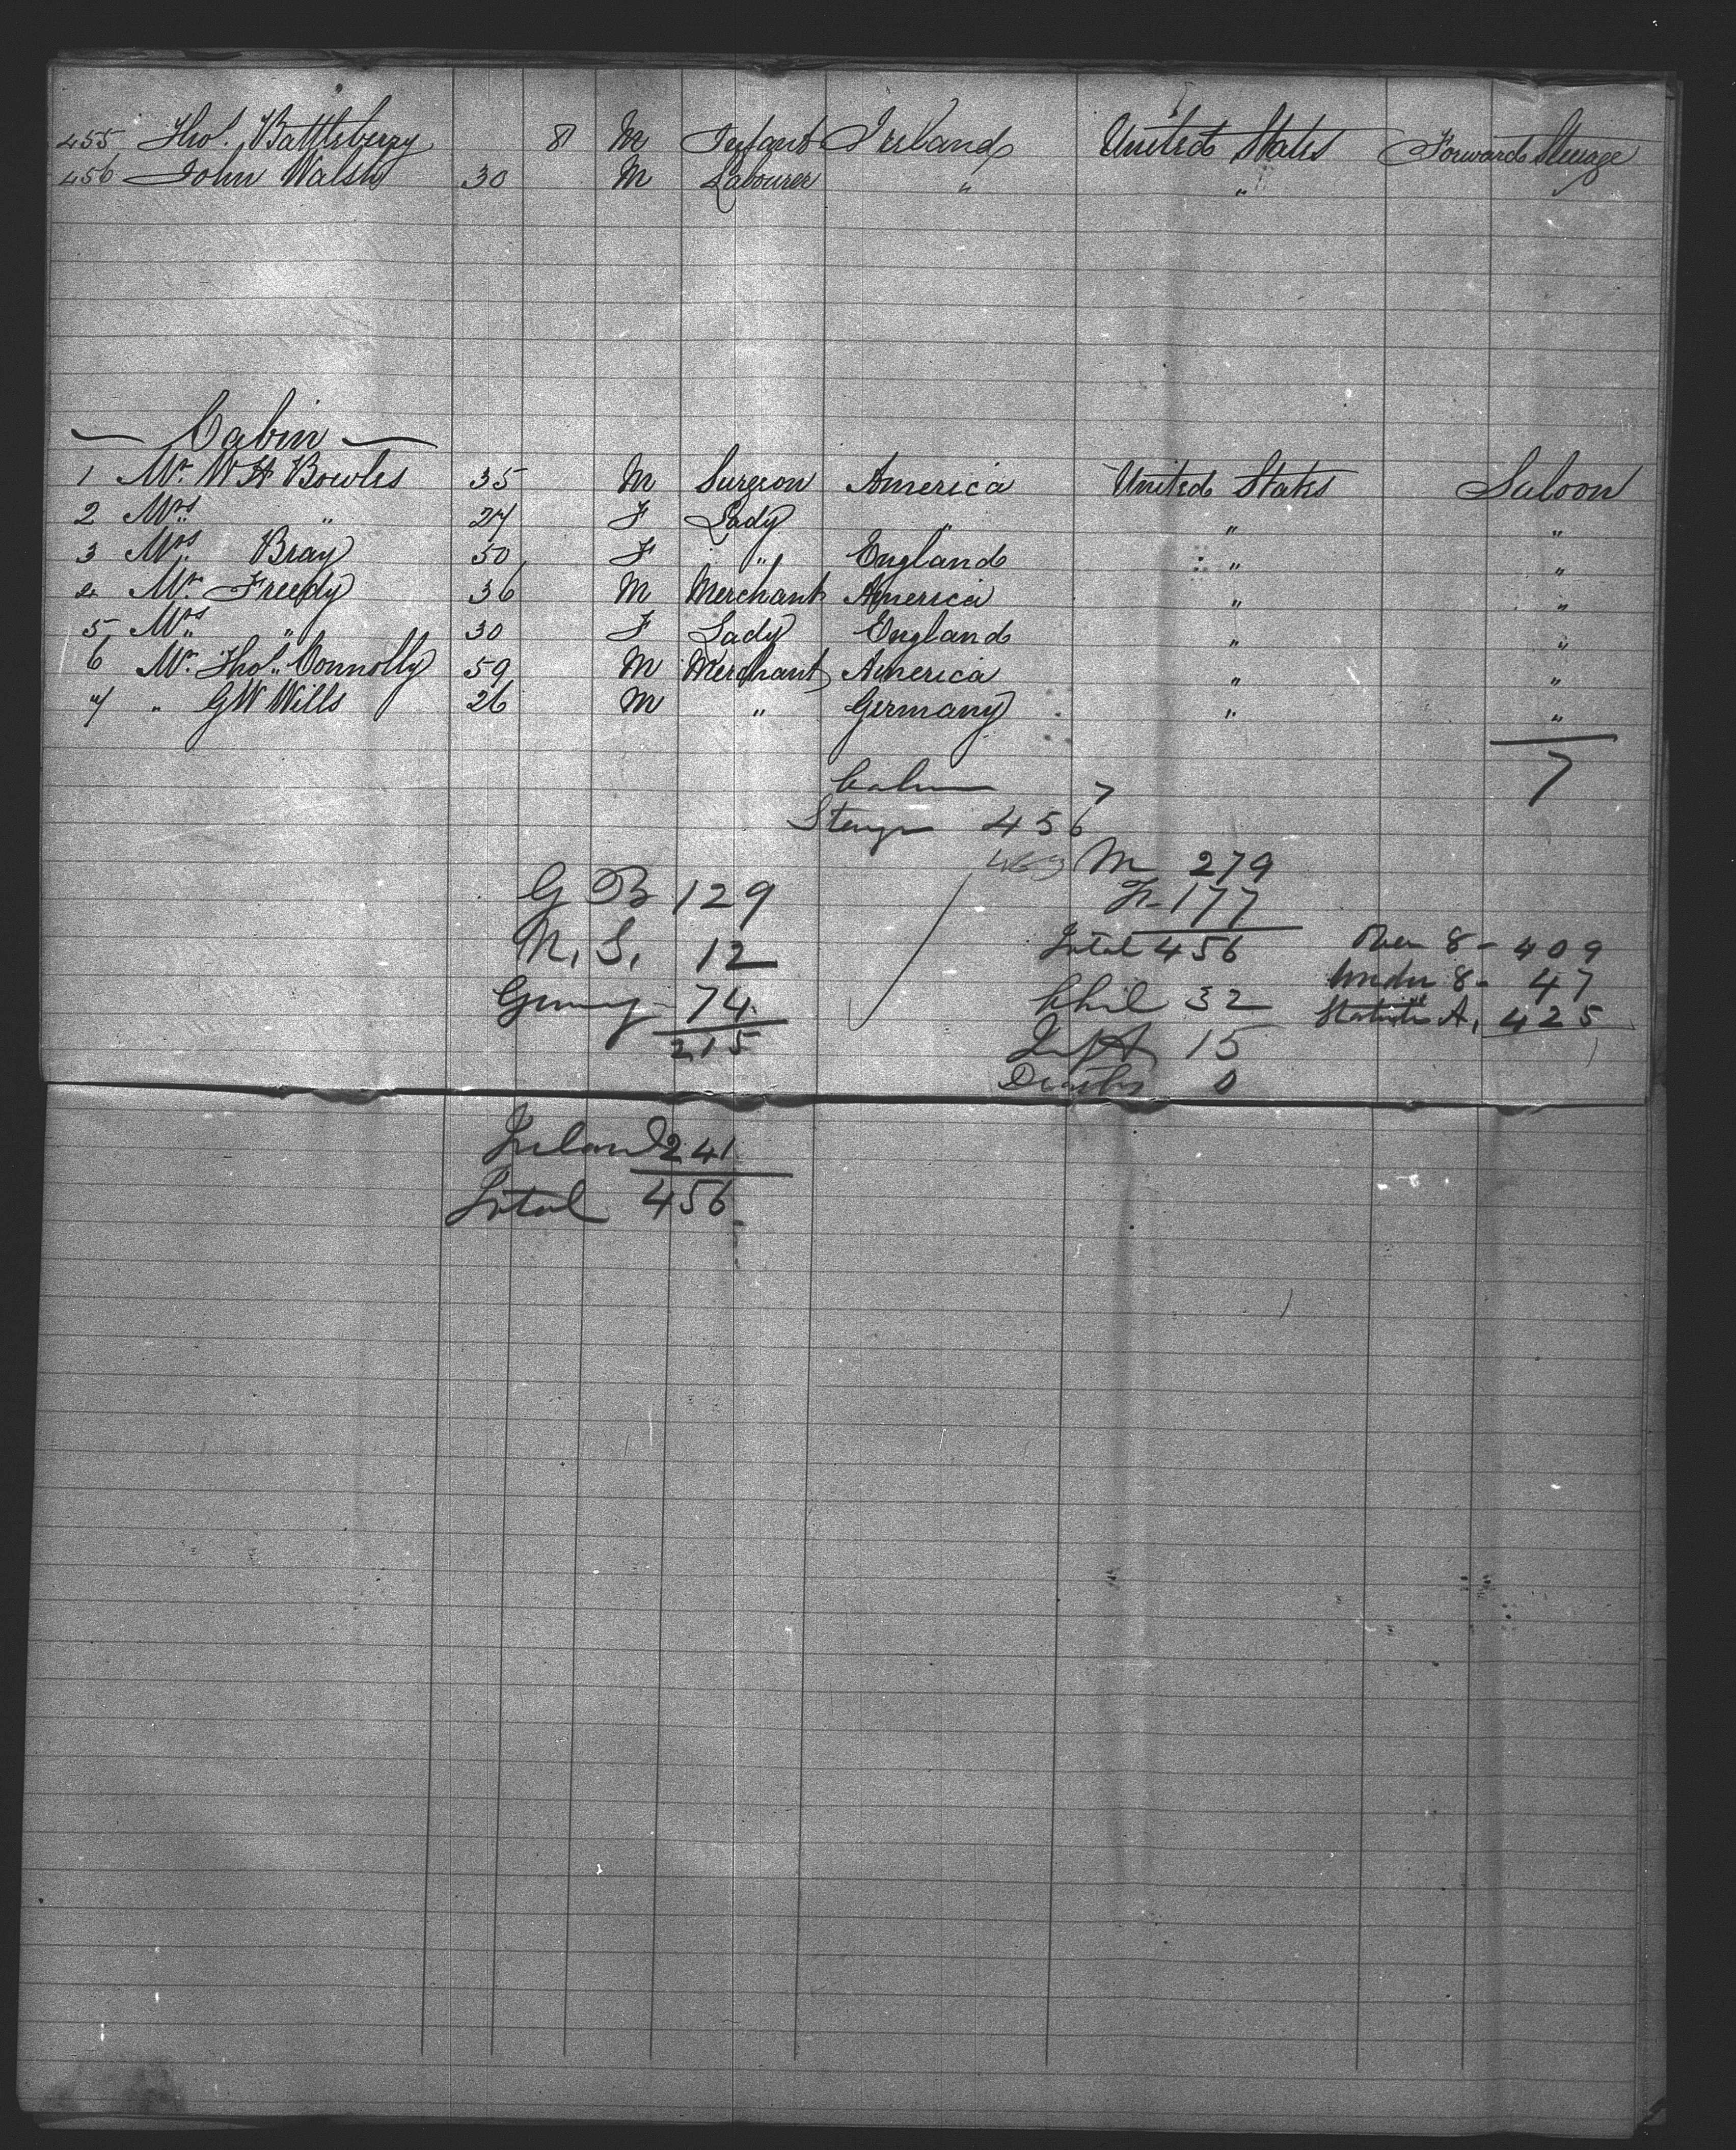 455 Thos. Battleberry 8 M Infant Ireland United States Forward Steerage
456 John Walsh 30 M Labourer " "
Cabin
1 Mr. W H Bowles 35 M Surgeon America United States Saloon
2 Mrs " 27 F Lady " " "
3 Mrs Bray 50 F " England " "
4 Mr. Freedy 36 M Merchant America " "
5 Mrs " 30 F Lady England " "
6 Mr. Thos. Connolly 59 M Merchant America " "
7 " G W Wills 26 M " Germany " "
7
Cabin 7
Steage 456
463
M 279
F 177
Total 456
Chil 32
Inft 15
Deaths 0
Over 8 - 409
Under 8 - 47
Statute A, 425
G B 129
U, S, 12
Germy 74
215
Ireland 241
Total 456